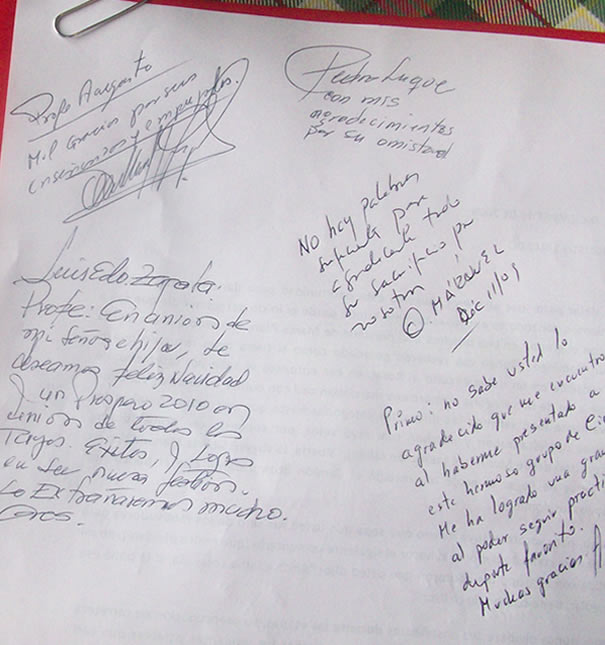 Profe Augusto
Mil gracias por sus
enseñanzas y empujones.
Pedro Luque
con mis
agradecimientos
por su amistad
No hay palabras
suficientes para
agradecerle todo
su sacrificio por
nosotros
O. MÁRQUEZ
Luis Edo. Zapata.
Profe: En unión de
mi señora e hijas, le
deseamos Feliz Navidad
y un Prospero 2010 en
unión de todos los
suyos. Exitos, y Logros
en su nueva gestión.
Lo Extrañaremos mucho.
Primo: no sabe usted lo
agradecido que me encuentro
al haberme presentado a
este hermoso grupo de
Me ha logrado una gran
al poder seguir
deporte favorito.
Muchas gracias. A